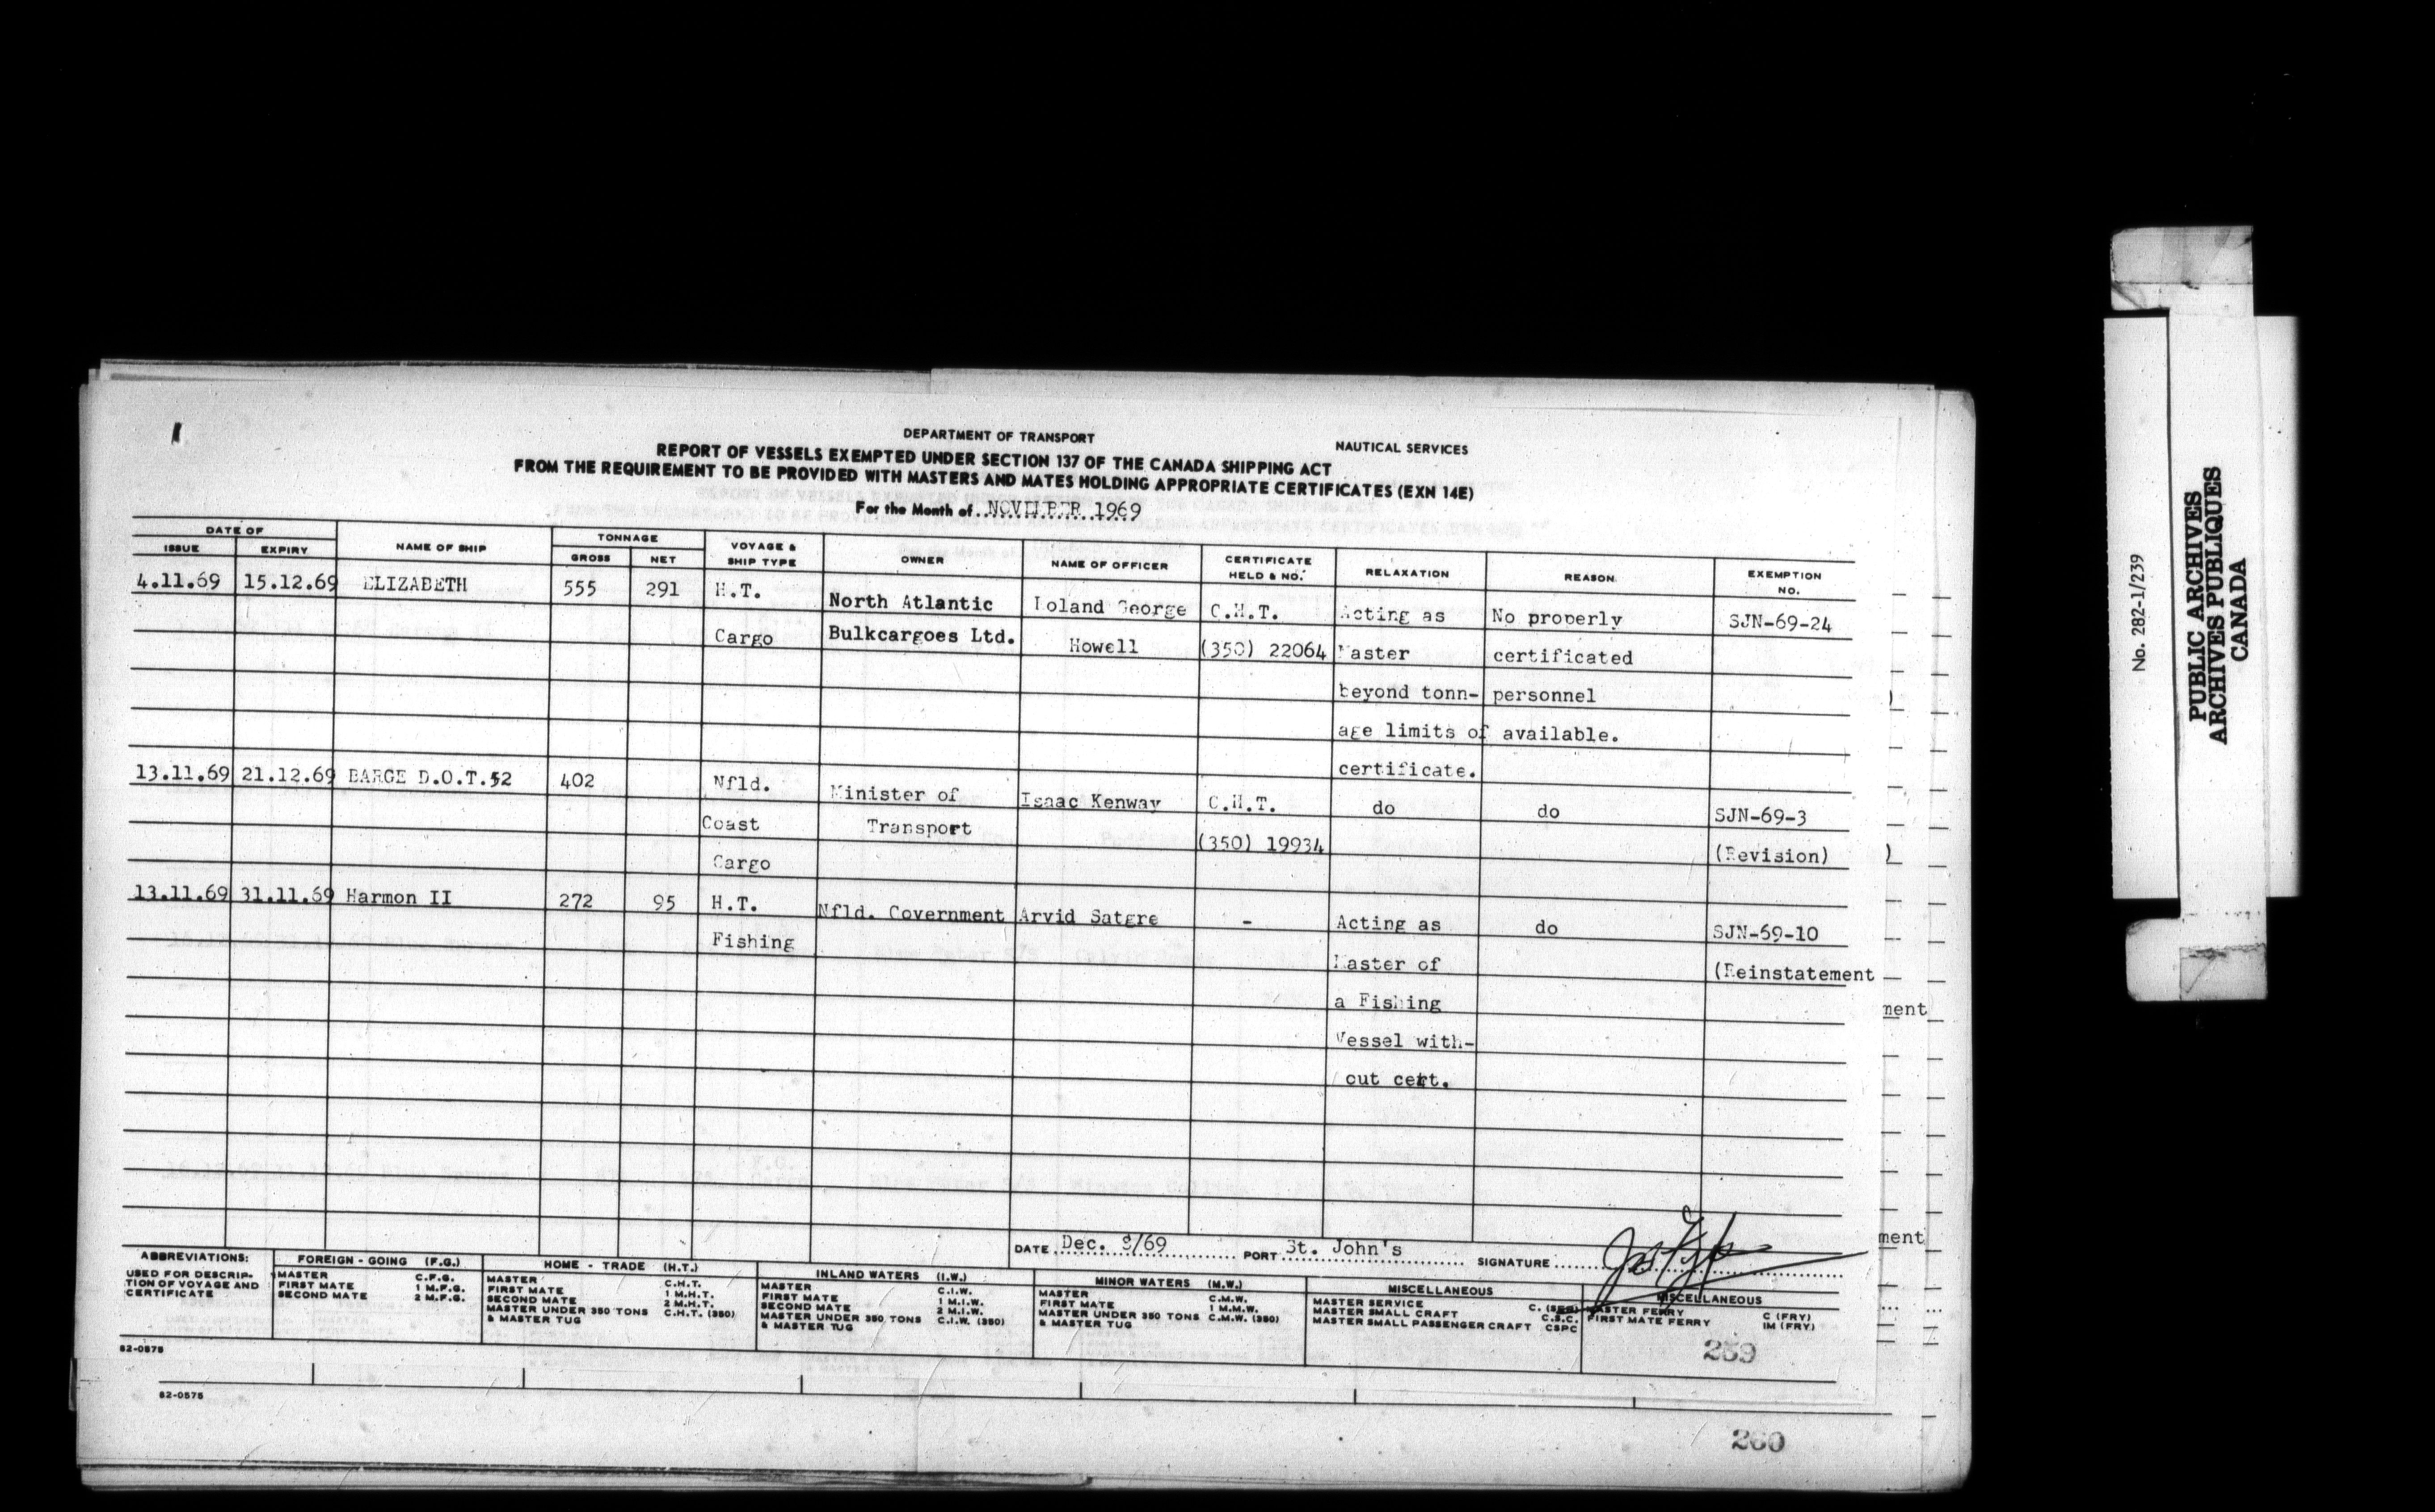 DEPARTMENT OF TRANSPORT
NAUTICAL SERVICES
REPORT OF VESSELS EXEMPTED UNDER SECTION 137 OF THE CANADA SHIPPING ACT
FROM THE REQUIREMENT TO BE PROVIDED WITH MASTERS AND MATES HOLDING APPROPRIATE CERTIFICATES (EXN 14E)
For the Month of NOVEMBER 1969
DATE OF NAME OF SHIP TONNAGE VOYAGE & SHIP TYPE OWNER NAME OF OFFICER CERTIFICATE HELD & NO. RELAXATION REASON EXEMPTION NO.
ISSUE EXPIRY GROSS NET
4.11.69 15.12.69 ELIZABETH 555 291 H.T. North Atlantic Loland George C.H.T. Acting as No properly SJN-69-24
Cargo Bulkcargoes Ltd. Howell (350) 22064 Master certificated
beyond tonn- personnel
age limits of available.
certificate.
13.11.69 21.12.69 BARGE D.O.T.52 402 Nfld. Minister of Isaac Kenway C.H.T. do do SJN-69-3
Coast Transport (350) 19934 (Revision)
Cargo
13.11.69 31.11.69 Harmon II 272 95 H.T. Nfld. Government Arvid Satgre - Acting as do SJN-69-10
Fishing Master of (Reinstatement
a Fishing
Vessel with-
out cert.
DATE Dec. 8/69 PORT St. John's SIGNATURE
ABBREVIATIONS:
USED FOR DESCRIP-
TION OF VOYAGE AND
CERTIFICATE
FOREIGN - GOING (F.G.)
MASTER C.F.G.
FIRST MATE 1 M.F.G.
SECOND MATE 2 M.F.G.
HOME - TRADE (H.T.)
MASTER C.H.T.
FIRST MATE 1 M.H.T.
SECOND MATE 2 M.H.T.
MASTER UNDER 350 TONS C.H.T. (350)
& MASTER TUG
INLAND WATERS (I.W.)
MASTER C.I.W.
FIRST MATE 1 M.I.W.
SECOND MATE 2 M.I.W.
MASTER UNDER 350 TONS C.I.W. (350)
& MASTER TUG
MINOR WATERS (M.W.)
MASTER C.M.W.
FIRST MATE 1 M.M.W.
MASTER UNDER 350 TONS C.M.W. (350)
& MASTER TUG
MISCELLANEOUS
MASTER SERVICE C. (SER)
MASTER SMALL CRAFT C.S.C.
MASTER SMALL PASSENGER CRAFT CSPC
MISCELLANEOUS
MASTER FERRY C (FRY)
FIRST MATE FERRY IM (FRY)
259
82-0575
82-0575
260
ment
ment
No. 282-1/239
PUBLIC ARCHIVES
ARCHIVES PUBLIQUES
CANADA